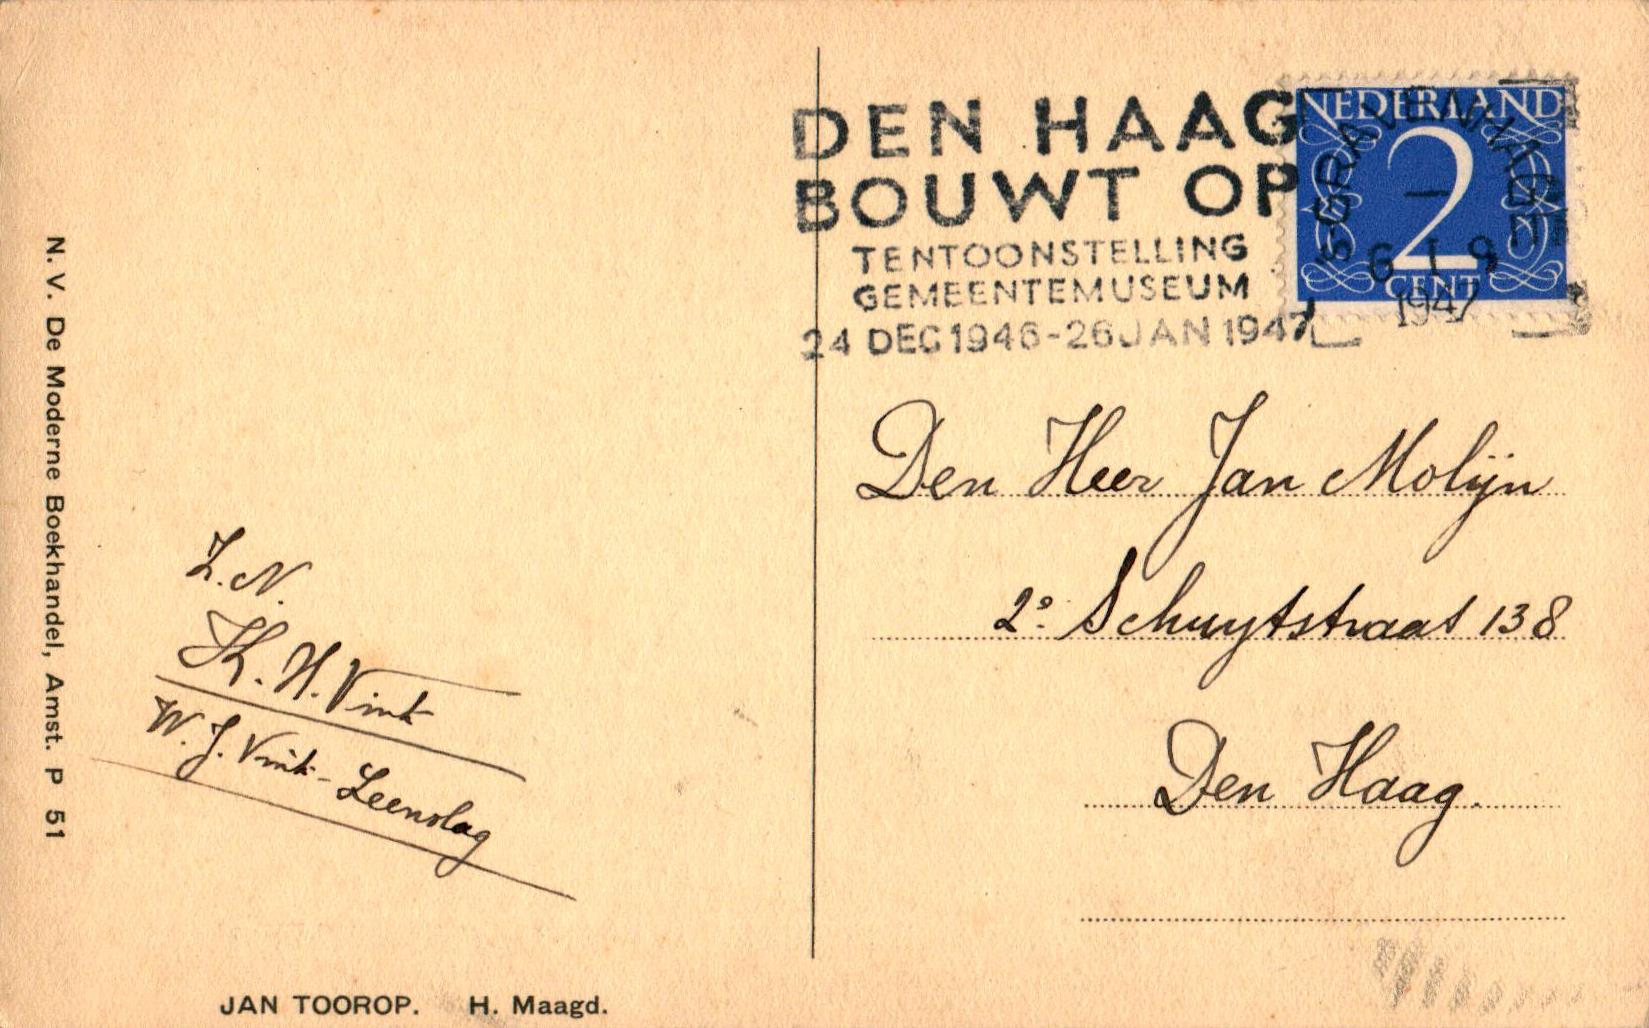 DEN HAAG
BOUWT OP
TENTOONSTELLING
GEMEENTEMUSEUM
24 DEC 1946-26 JAN 1947
NEDERLAND
2
CENT
'S-GRAVENHAGE
6 I 9
1947
Den Heer Jan Molijn
2e Schuytstraat 138
Den Haag.
Z. N.
K. H. Vink
W. J. Vink-Leenslag
N. V. De Moderne Boekhandel, Amst. P 51
JAN TOOROP. H. Maagd.